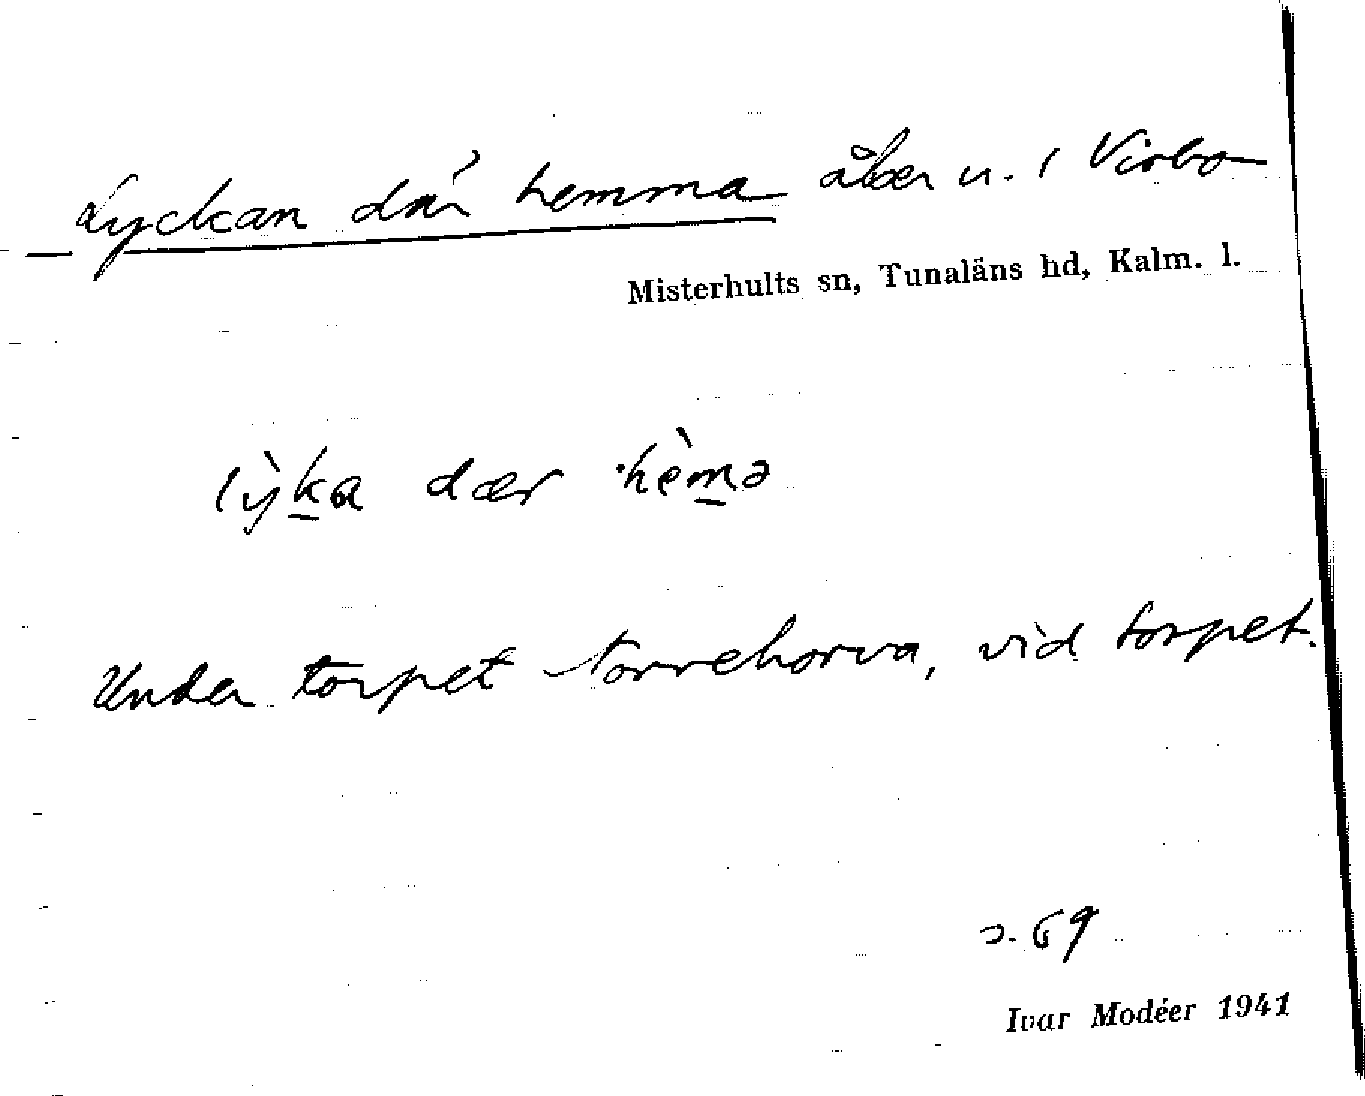 Lyckan där hemma åker u. i Virbo
Misterhults sn, Tunaläns hd, Kalm. l.
lỳka dær ·hèmə
Under torpet Norrehorva, vid torpet.
s. 69
Ivar Modéer 1941